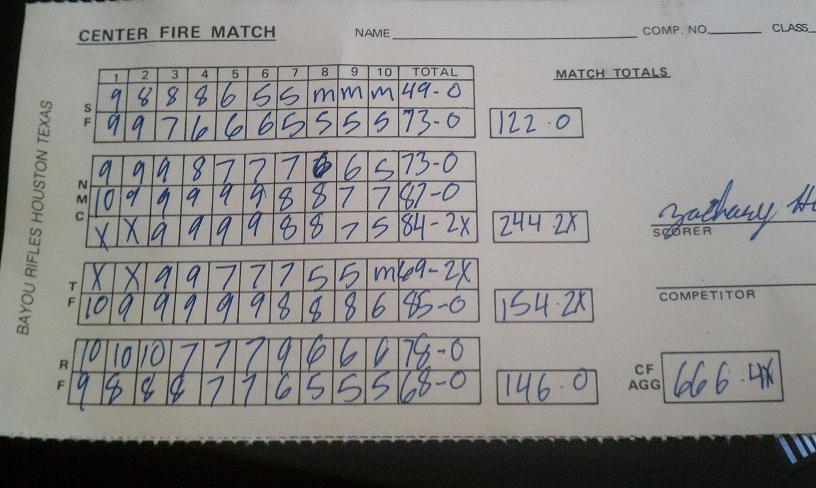 CENTER FIRE MATCH NAME COMP. NO. CLASS
BAYOU RIFLES HOUSTON TEXAS
1 2 3 4 5 6 7 8 9 10 TOTAL
MATCH TOTALS
SF
9 8 8 8 6 5 5 m m m 49-0
9 9 7 6 6 6 5 5 5 5 73-0
122-0
NMC
9 9 9 8 7 7 7 6 6 5 73-0
10 9 9 9 9 9 8 8 7 7 87-0
X X 9 9 9 9 8 8 7 5 84-2X
244 2X
Zachary
SCORER
TF
X X 9 9 7 7 7 5 5 m 69-2X
10 9 9 9 9 9 8 8 8 6 85-0
154-2X
COMPETITOR
RF
10 10 10 7 7 7 9 6 6 6 78-0
9 8 8 8 7 7 6 5 5 5 68-0
146-0
CF AGG
666-4X